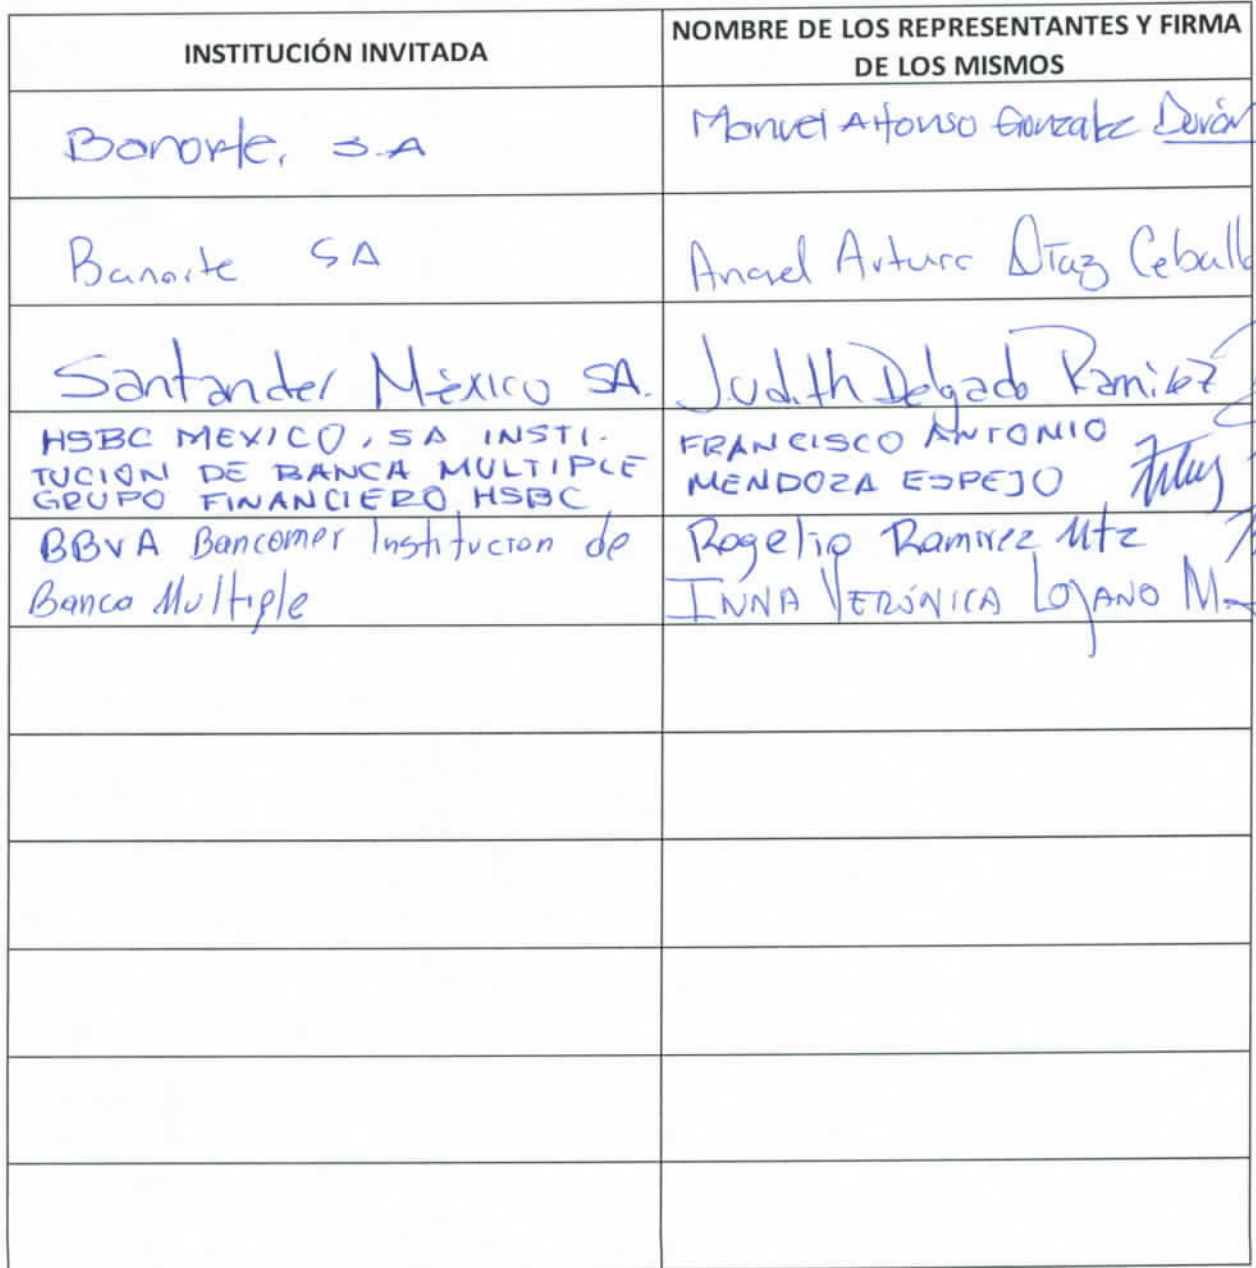 INSTITUCIÓN INVITADA
NOMBRE DE LOS REPRESENTANTES Y FIRMA
DE LOS MISMOS
Banorte, S.A
Manuel Alfonso Gonzalez Durán
Banorte SA
Angel Arturo Díaz Ceball
Santander México SA.
Judith Delgado Ramirez
HSBC MEXICO, SA INSTI-
TUCION DE BANCA MULTIPLE
GRUPO FINANCIERO HSBC
FRANCISCO ANTONIO
MENDOZA ESPEJO
BBVA Bancomer Institucion de
Banca Multiple
Rogelio Ramirez Mtz
INNA VERÓNICA LOZANO M